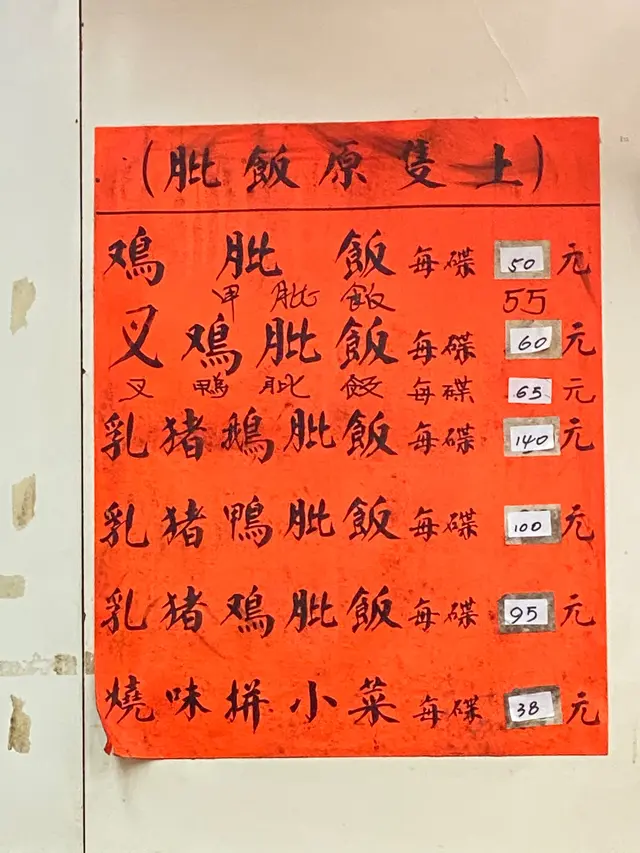 (肶飯原隻上)
鳮肶飯每碟50元
甲肶飯55
叉鳮肶飯每碟60元
叉鴨肶飯每碟65元
乳猪鵝肶飯每碟140元
乳猪鴨肶飯每碟100元
乳猪鳮肶飯每碟95元
燒味拼小菜每碟38元